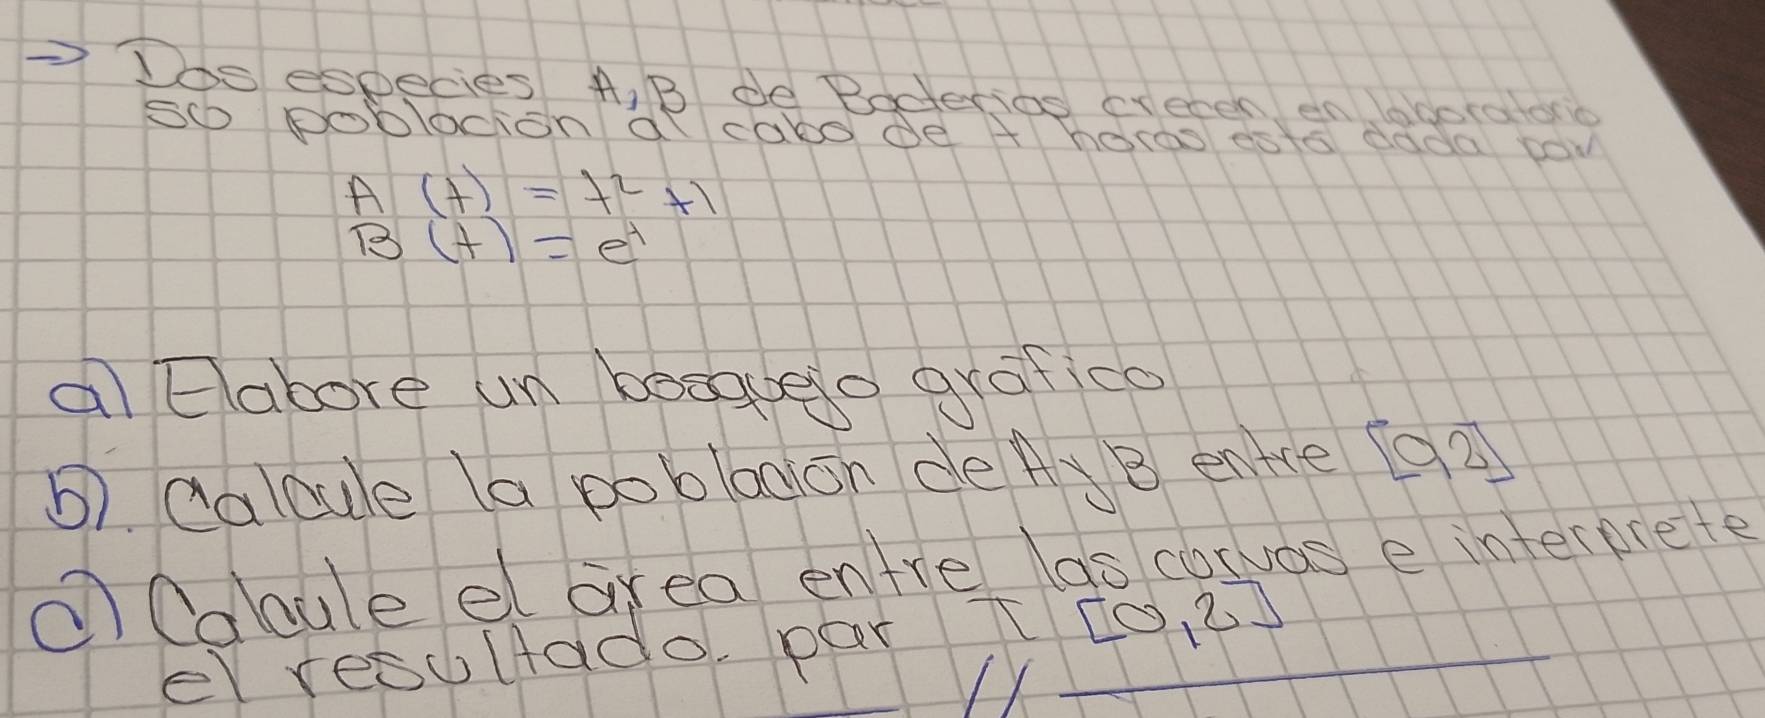 → Dos especies A, B de Bacterias crecen en laboratorio
su población al cabo de t horas está dada por
A (t) = t² + 1
B (t) = eᵗ
a) Elabore un bosquejo gráfico
b). Calcule la población de A y B entre [0,2]
c) Calcule el área entre las curvas e interprete
el resultado. par t [0,2]